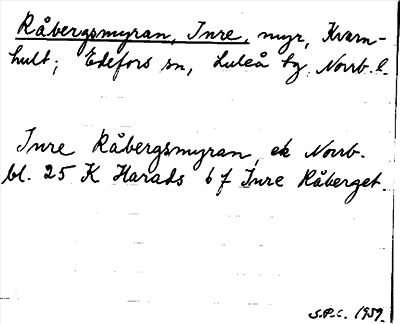 Råbergsmyran, Inre, myr, Kvarn-
hult, Edefors sn, Luleå tg, Norrb. l.
Inre Råbergsmyran ek Norrb.
bl. 25 K Harads 6 f Inre Råberget.
S.P.C. 1959.